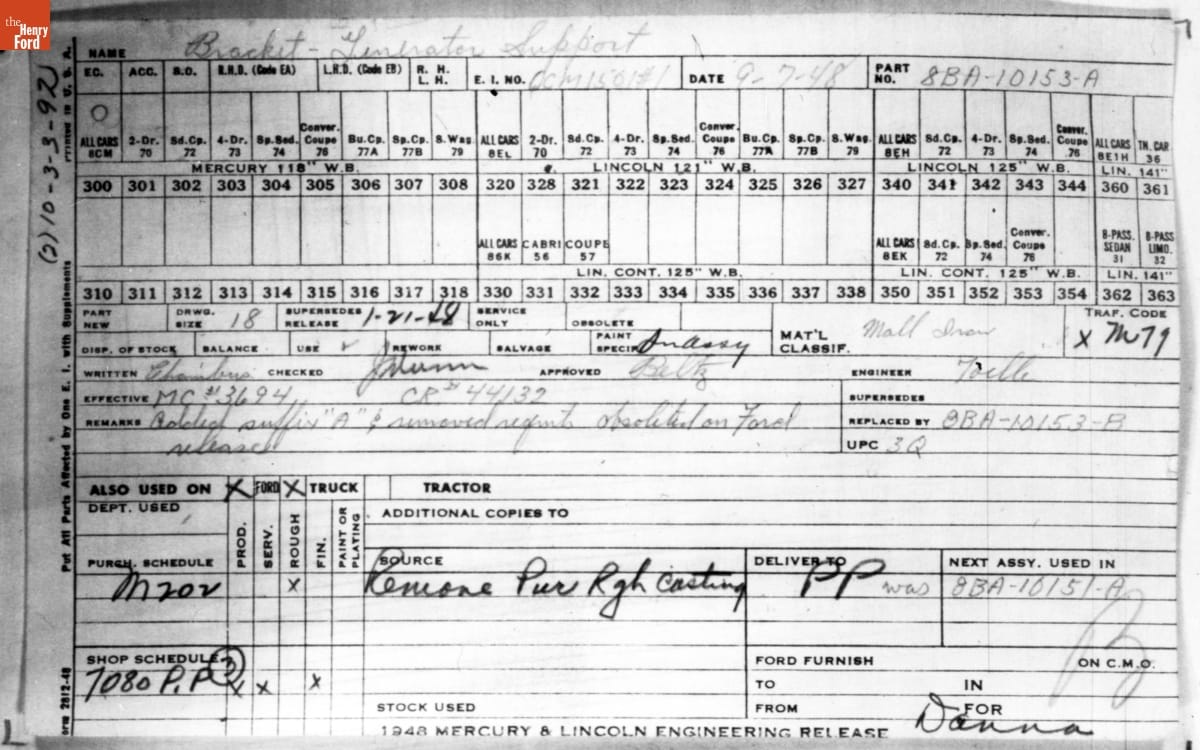 the
Henry
Ford
NAME Bracket - Generator Support
EC. ACC. B.O. R.H.D. (Code EA) L.H.D. (Code EB) R. H. L. H. E. I. NO. OCM1501#1 DATE 9-7-48 PART NO. 8BA-10153-A
O
ALL CARS 8CM 2-Dr. 70 Sd.Cp. 72 4-Dr. 73 Sp.Sed. 74 Conver. Coupe 76 Bu.Cp. 77A Sp.Cp. 77B S.Wag. 79 ALL CARS 8EL 2-Dr. 70 Sd.Cp. 72 4-Dr. 73 Sp.Sed. 74 Conver. Coupe 76 Bu.Cp. 77A Sp.Cp. 77B S.Wag. 79 ALL CARS 8EH Sd.Cp. 72 4-Dr. 73 Sp.Sed. 74 Conver. Coupe 76 ALL CARS 8E1H TN. CAR 36
MERCURY 118" W.B. LINCOLN 121" W.B. LINCOLN 125" W.B. LIN. 141"
300 301 302 303 304 305 306 307 308 320 328 321 322 323 324 325 326 327 340 341 342 343 344 360 361
ALL CARS 86K CABRI 56 COUPE 57 ALL CARS 8EK Sd.Cp. 72 Sp.Sed. 74 Conver. Coupe 76 8-PASS. SEDAN 31 8-PASS LIMO. 32
LIN. CONT. 125" W.B. LIN. CONT. 125" W.B. LIN. 141"
310 311 312 313 314 315 316 317 318 330 331 332 333 334 335 336 337 338 350 351 352 353 354 362 363
PART NEW DRWG. SIZE 18 SUPERSEDES RELEASE 1-21-48 SERVICE ONLY OBSOLETE MAT'L CLASSIF. Mall Iron TRAF. CODE X M79
DISP. OF STOCK BALANCE USE ✓ REWORK SALVAGE PAINT SPECIF. In assy
WRITTEN Chambers CHECKED APPROVED Beltz ENGINEER
EFFECTIVE MC #3694 CR #44132 SUPERSEDES
REMARKS Added suffix "A" & removed reqmts obsoleted on Ford REPLACED BY 8BA-10153-B
release UPC 3Q
ALSO USED ON X FORD X TRUCK TRACTOR
DEPT. USED PROD. SERV. ROUGH FIN. PAINT OR PLATING ADDITIONAL COPIES TO
PURCH. SCHEDULE SOURCE DELIVER TO NEXT ASSY. USED IN
M202 X Remove Pur Rgh Casting PP was 8BA-10151-A
SHOP SCHEDULE FORD FURNISH ON C.M.O.
7080 P.P. 3 X X X TO IN
STOCK USED FROM FOR Danna
1948 MERCURY & LINCOLN ENGINEERING RELEASE
(2) 10-3-3-92
Printed in U.S.A.
Put All Parts Affected by One E. I. with Supplements
orm 2812-48